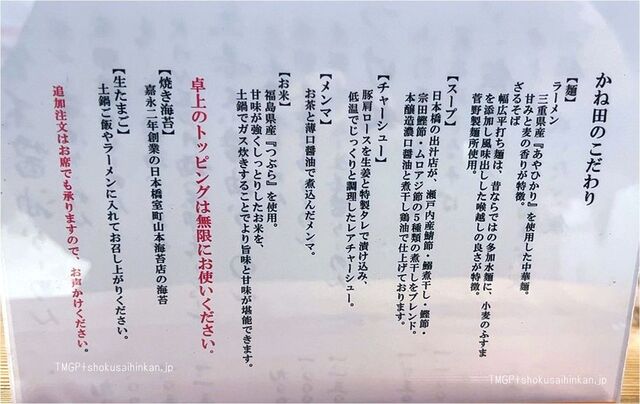 かね田のこだわり
【麺】
ラーメン
三重県産『あやひかり』を使用した中華麺。
甘みと麦の香りが特徴。
ざるそば
幅広平打ち麺は、昔ならではの多加水麺に、小麦のふすま
を添加し風味出しした喉越しの良さが特徴。
菅野製麺所使用。
【スープ】
日本橋の出汁店が、瀬戸内産鯖節・鰯煮干し・鰹節・
宗田鰹節・ムロアジ節の5種類の煮干しをブレンド。
本醸造濃口醤油と煮干し鶏油で仕上げております。
【チャーシュー】
豚肩ロースを生姜と特製タレで漬け込み、
低温でじっくりと調理したレアチャーシュー。
【メンマ】
お茶と薄口醤油で煮込んだメンマ。
【お米】
福島県産『つぶら』を使用。
甘味が強くしっとりしたお米を、
土鍋でガス炊きすることでより旨味と甘味が堪能できます。
卓上のトッピングは無限にお使いください。
【焼き海苔】
嘉永二年創業の日本橋室町山本海苔店の海苔
【生たまご】
土鍋ご飯やラーメンに入れてお召し上がりください。
追加注文はお席でも承りますので、お声かけください。
TMGP|shokusaihinkan.jp
TMGP|shokusaihinkan.jp